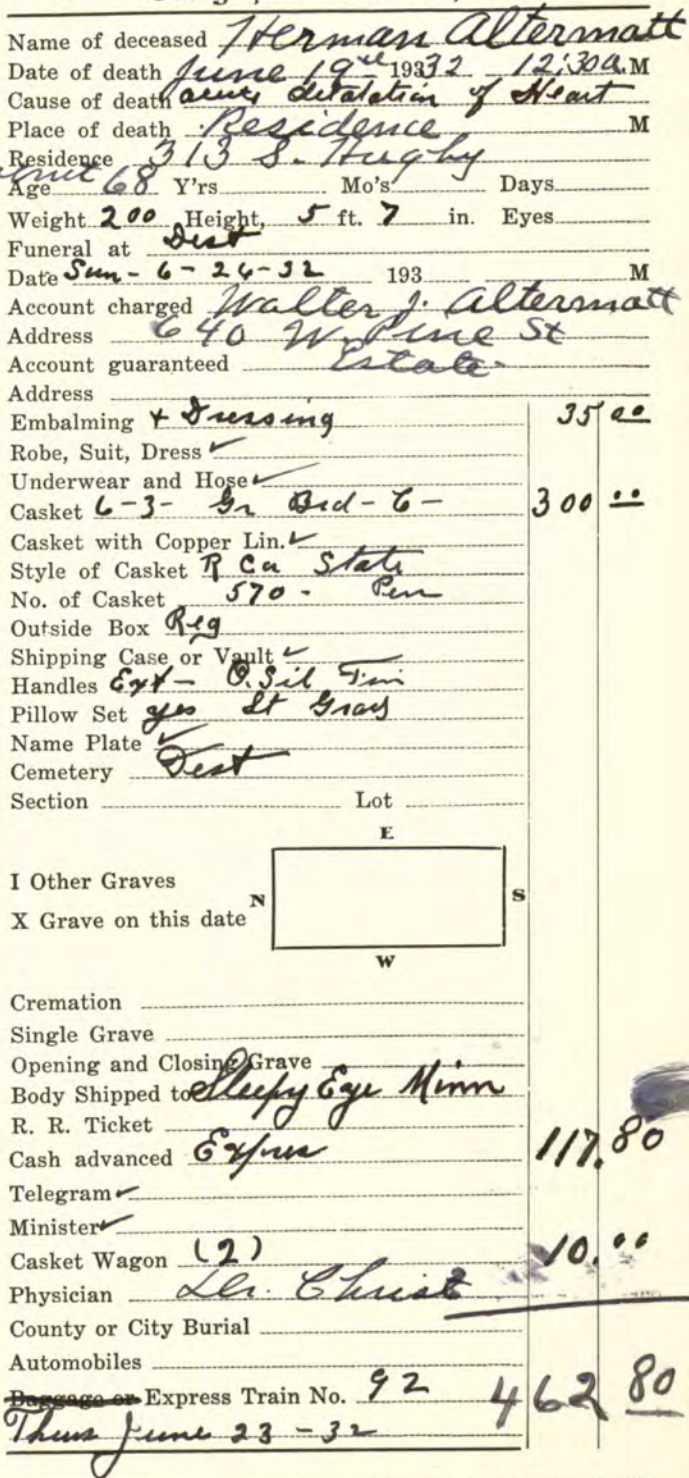 Name of deceased Herman Altermatt
Date of death June 19 1932 12:30 a.M
Cause of death acute dilatation of Heart
Place of death Residence M
Residence 313 S.
Age 68 Y'rs Mo's Days
Weight 200 Height, 5 ft. 7 in. Eyes
Funeral at Dest
Date Sun - 6-26-32 193 M
Account charged Walter J. Altermatt
Address 640 W. Pine St
Account guaranteed Estate
Address
Embalming + Dressing 35 00
Robe, Suit, Dress ✓
Underwear and Hose ✓
Casket 6-3- Gr Brd - C- 300 00
Casket with Copper Lin. ✓
Style of Casket State
No. of Casket 570 -
Outside Box Reg
Shipping Case or Vault ✓
Handles Ext - O. Sil
Pillow Set yes
Name Plate ✓
Cemetery Dest
Section Lot
E
I Other Graves
N S
X Grave on this date
W
Cremation
Single Grave
Opening and Closing Grave
Body Shipped to Sleepy Eye Minn
R. R. Ticket
Cash advanced Expres 117.80
Telegram ✓
Minister ✓
Casket Wagon (2) 10.00
Physician Dr. Christ
County or City Burial
Automobiles
Baggage or Express Train No. 92 462 80
Thurs June 23-32